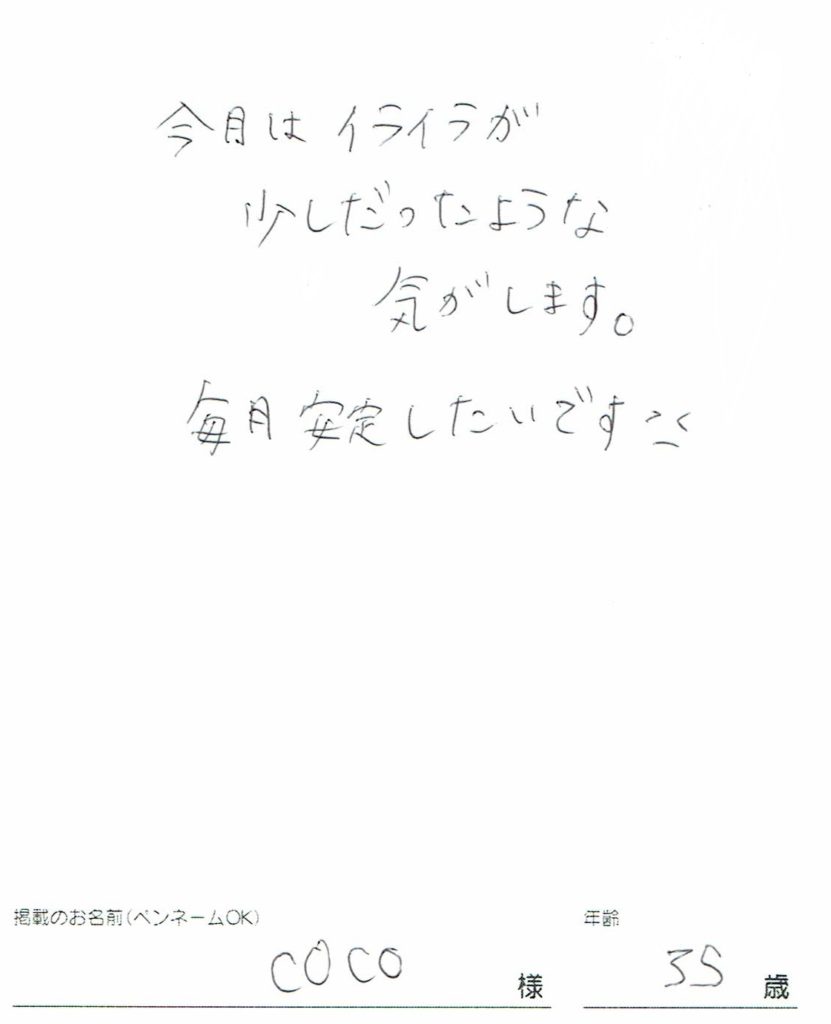 今月はイライラが
少しだったような
気がします。
毎月安定したいです
掲載のお名前(ペンネームOK) 年齢
coco 様 35 歳